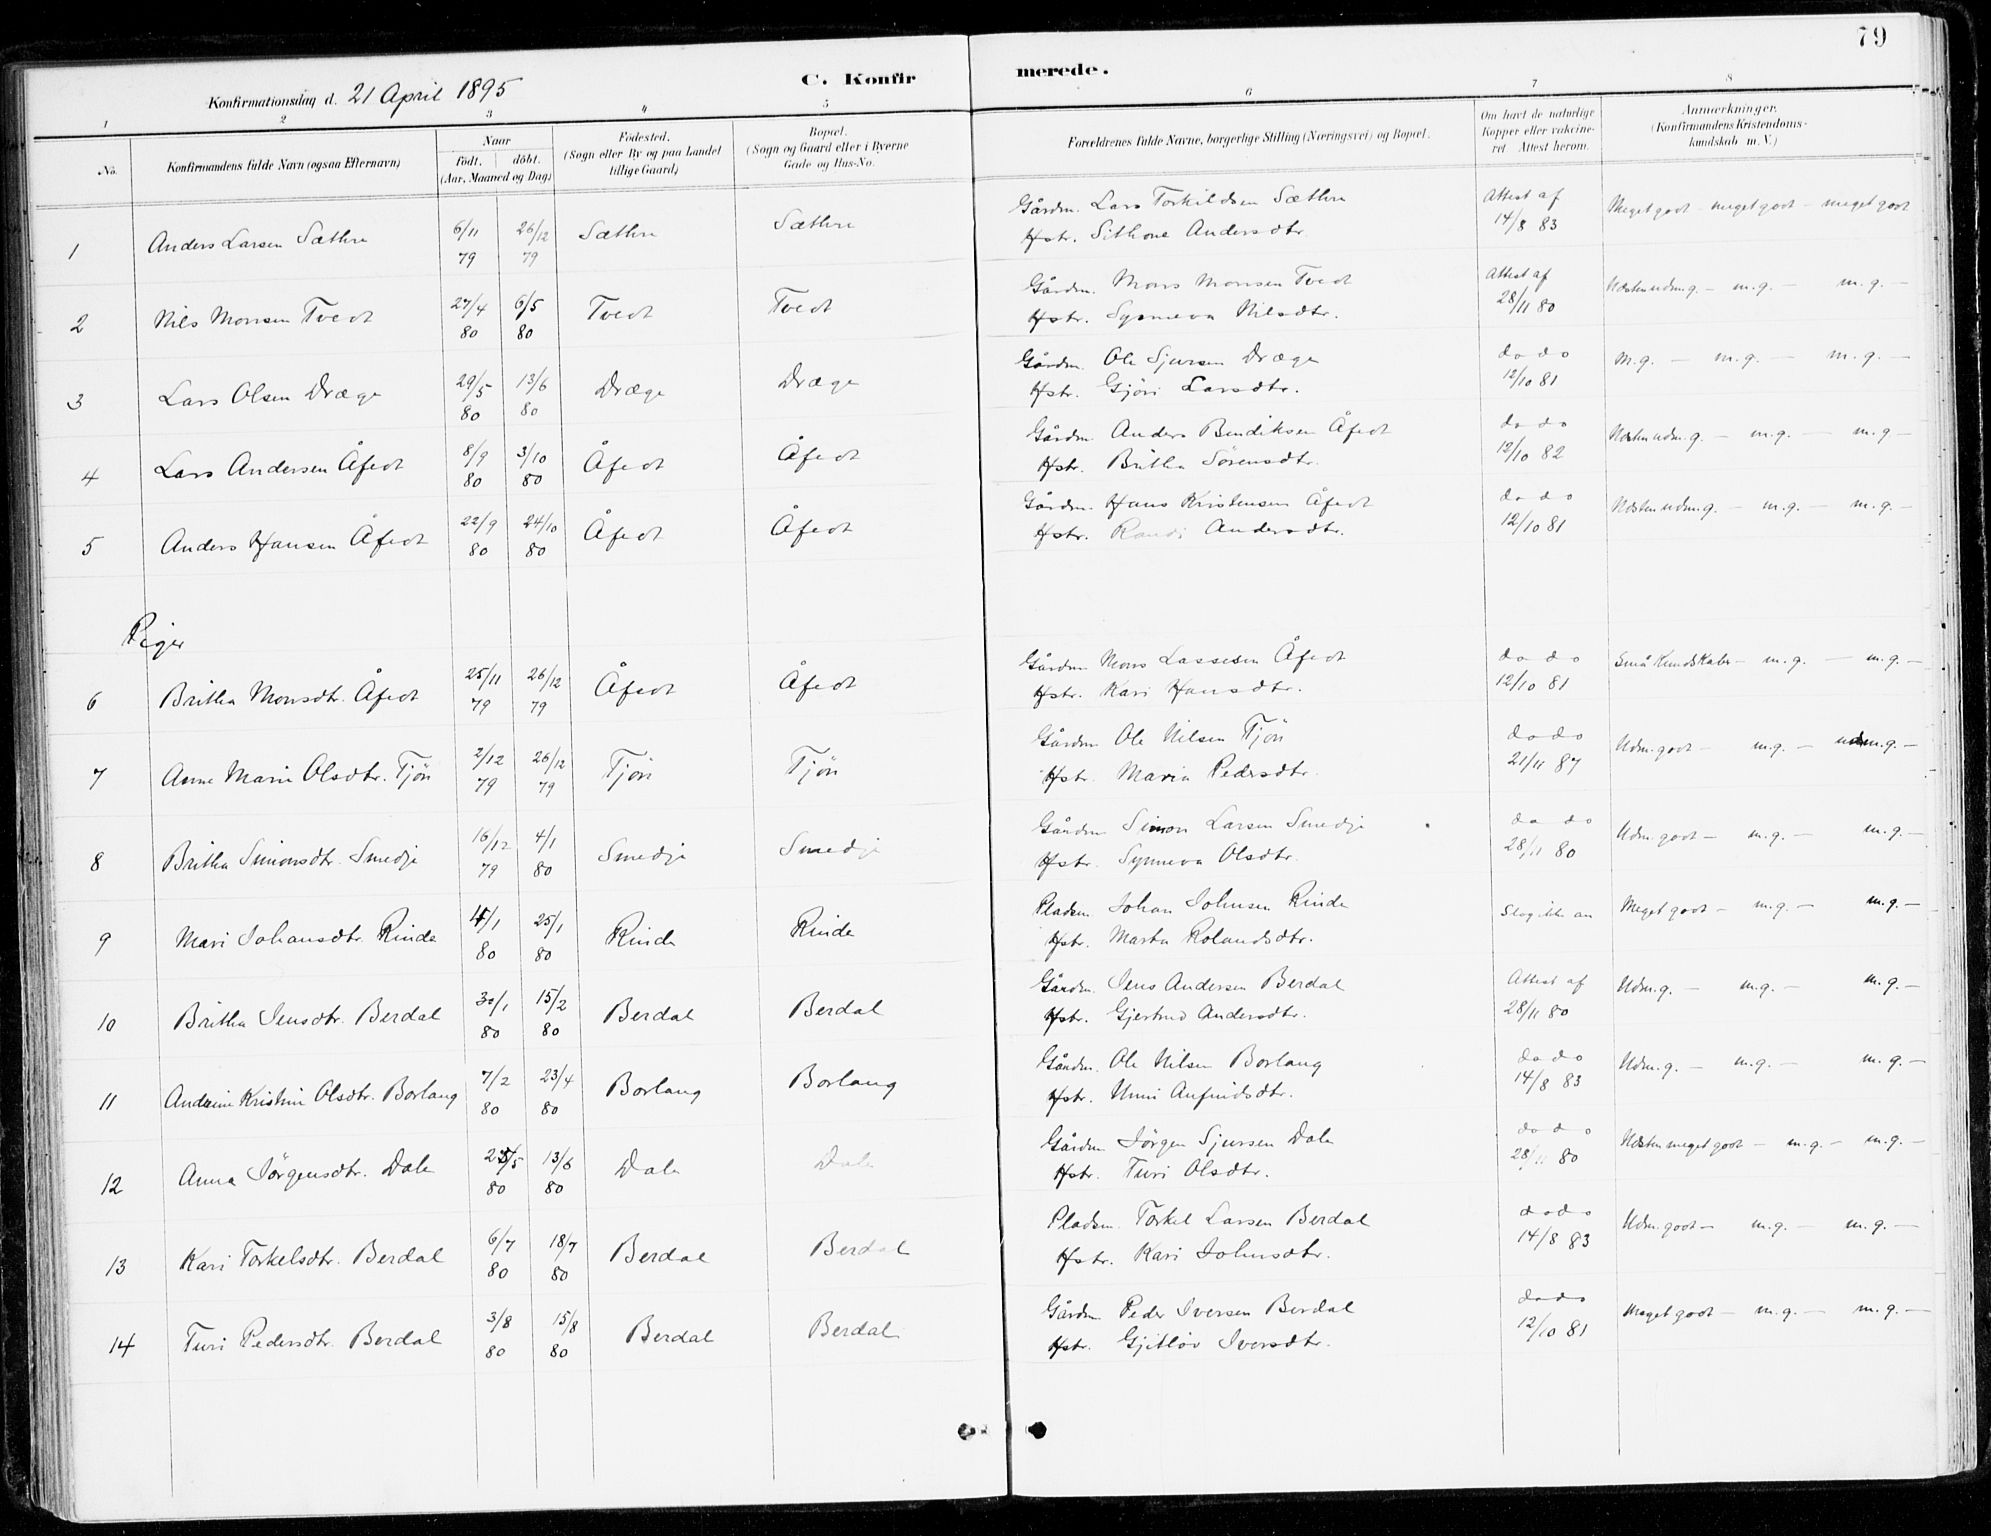 79
C. Konfirmerede.
Konfirmationsdag d. 21 April 1895
1 2 3 4 5 6 7 8
No. Konfirmandens fulde Navn (ogsaa Efternavn) Naar født. døbt. (Aar, Maaned og Dag) Fødested. (Sogn eller By og paa Landet tillige Gaard) Bopæl. (Sogn og Gaard eller i Byerne Gade og Hus-No. Forældrenes fulde Navne, borgerlige Stilling (Næringsvei) og Bopæl. Om havt de naturlige Kopper eller vakcineret. Attest herom. Anmærkninger. (Konfirmandens Kristendomskundskab m. V.)
1 Anders Larsen Sæthre 6/11 79 26/12 79 Sæthre Sæthre Gårdm. Lars Torkildsen Sæthre Attest af 14/8 83 Meget godt - meget godt - meget godt
Hstr. Andersdtr.
2 Nils Monsen Tvedt 27/4 80 6/5 80 Tvedt Tvedt Gårdm. Mons Monsen Tvedt Attest af 28/11 80 Næsten udm.g. - m.g. - m.g. -
Hstr. Synneva Nilsdtr.
3 Lars Olsen Dræge 29/5 80 13/6 80 Dræge Dræge Gårdm. Ole Sjursen Dræge do do 12/10 81 M.g. - m.g. - m.g. -
Hstr. Gjöri Larsdtr.
4 Lars Andersen Åfedt 8/9 80 3/10 80 Åfedt Åfedt Gårdm. Anders Bendiksen Åfedt do do 12/10 82 Næsten udm.g. - m.g. - m.g -
Hstr. Britha Sörensdtr.
5 Anders Hansen Åfedt 22/9 80 24/10 80 Åfedt Åfedt Gårdm. Hans Kristensen Åfedt do do 12/10 81 Næsten udm.g. - m.g. - m.g. -
Hstr. Randi Andersdtr.
Piger
6 Britha Monsdtr. Åfedt 25/11 79 26/12 79 Åfedt Åfedt Gårdm Mons Lassesen Åfedt do do 12/10 81 Små Kundskaber - m.g. - m.g. -
Hstr. Kari Hansdtr.
7 Anne Marie Olsdtr. Tjön 2/12 79 26/12 79 Tjön Tjön Gårdm Ole Nilsen Tjön do do 21/11 87 Udm. godt - m.g. - udm.g. -
Hstr. Maria Pedersdtr.
8 Britha Simonsdtr. Smedje 16/12 79 4/1 80 Smedje Smedje Gårdm Simon Larsen Smedje do do 28/11 80 Udm. godt - m.g. - m.g. -
Hstr. Synneva Olsdtr.
9 Mari Johansdtr. Rinde 80 25/1 80 Rinde Rinde Pladsm. Johan Johnsen Rinde Slog ikke an Meget godt - m.g. - m.g. -
Hstr. Marta Rolandsdtr.
10 Britha Jensdtr. Berdal 30/1 80 15/2 80 Berdal Berdal Gårdm. Jens Andersen Berdal Attest af 28/11 80 Udm.g. - m.g. - m.g. -
Hstr. Gjertrud Andersdtr.
11 Andrine Kristine Olsdtr. Borlaug 7/2 80 23/4 80 Borlaug Borlaug Gårdm. Ole Nilsen Borlaug do do 14/8 83 Udm.g. - m.g. - m.g. -
Hstr. Unni Anfindsdtr.
12 Anna Jörgensdtr. Dale 80 13/6 80 Dale Dale Gårdm Jörgen Sjursen Dale do do 28/11 80 Næsten meget godt - m.g. - m.g. -
Hstr. Turi Olsdtr.
13 Kari Torkelsdtr. Berdal 6/7 80 18/7 80 Berdal Berdal Pladsm. Torkel Larsen Berdal do do 14/8 83 Udm. godt - m.g. - m.g. -
Hstr. Kari Johnsdtr.
14 Turi Pedersdtr. Berdal 3/8 80 15/8 80 Berdal Berdal Gårdm Peder Iversen Berdal do do 12/10 81 Meget godt - m.g. - m.g. -
Hstr. Gjetlöv Iversdtr.